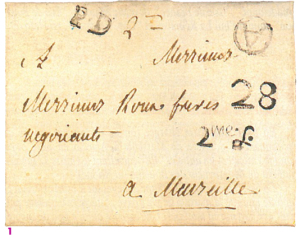 P.D 2
A
A Messieurs
Messieurs Roux freres 28
négociants
2 me R.
a Marseille
1